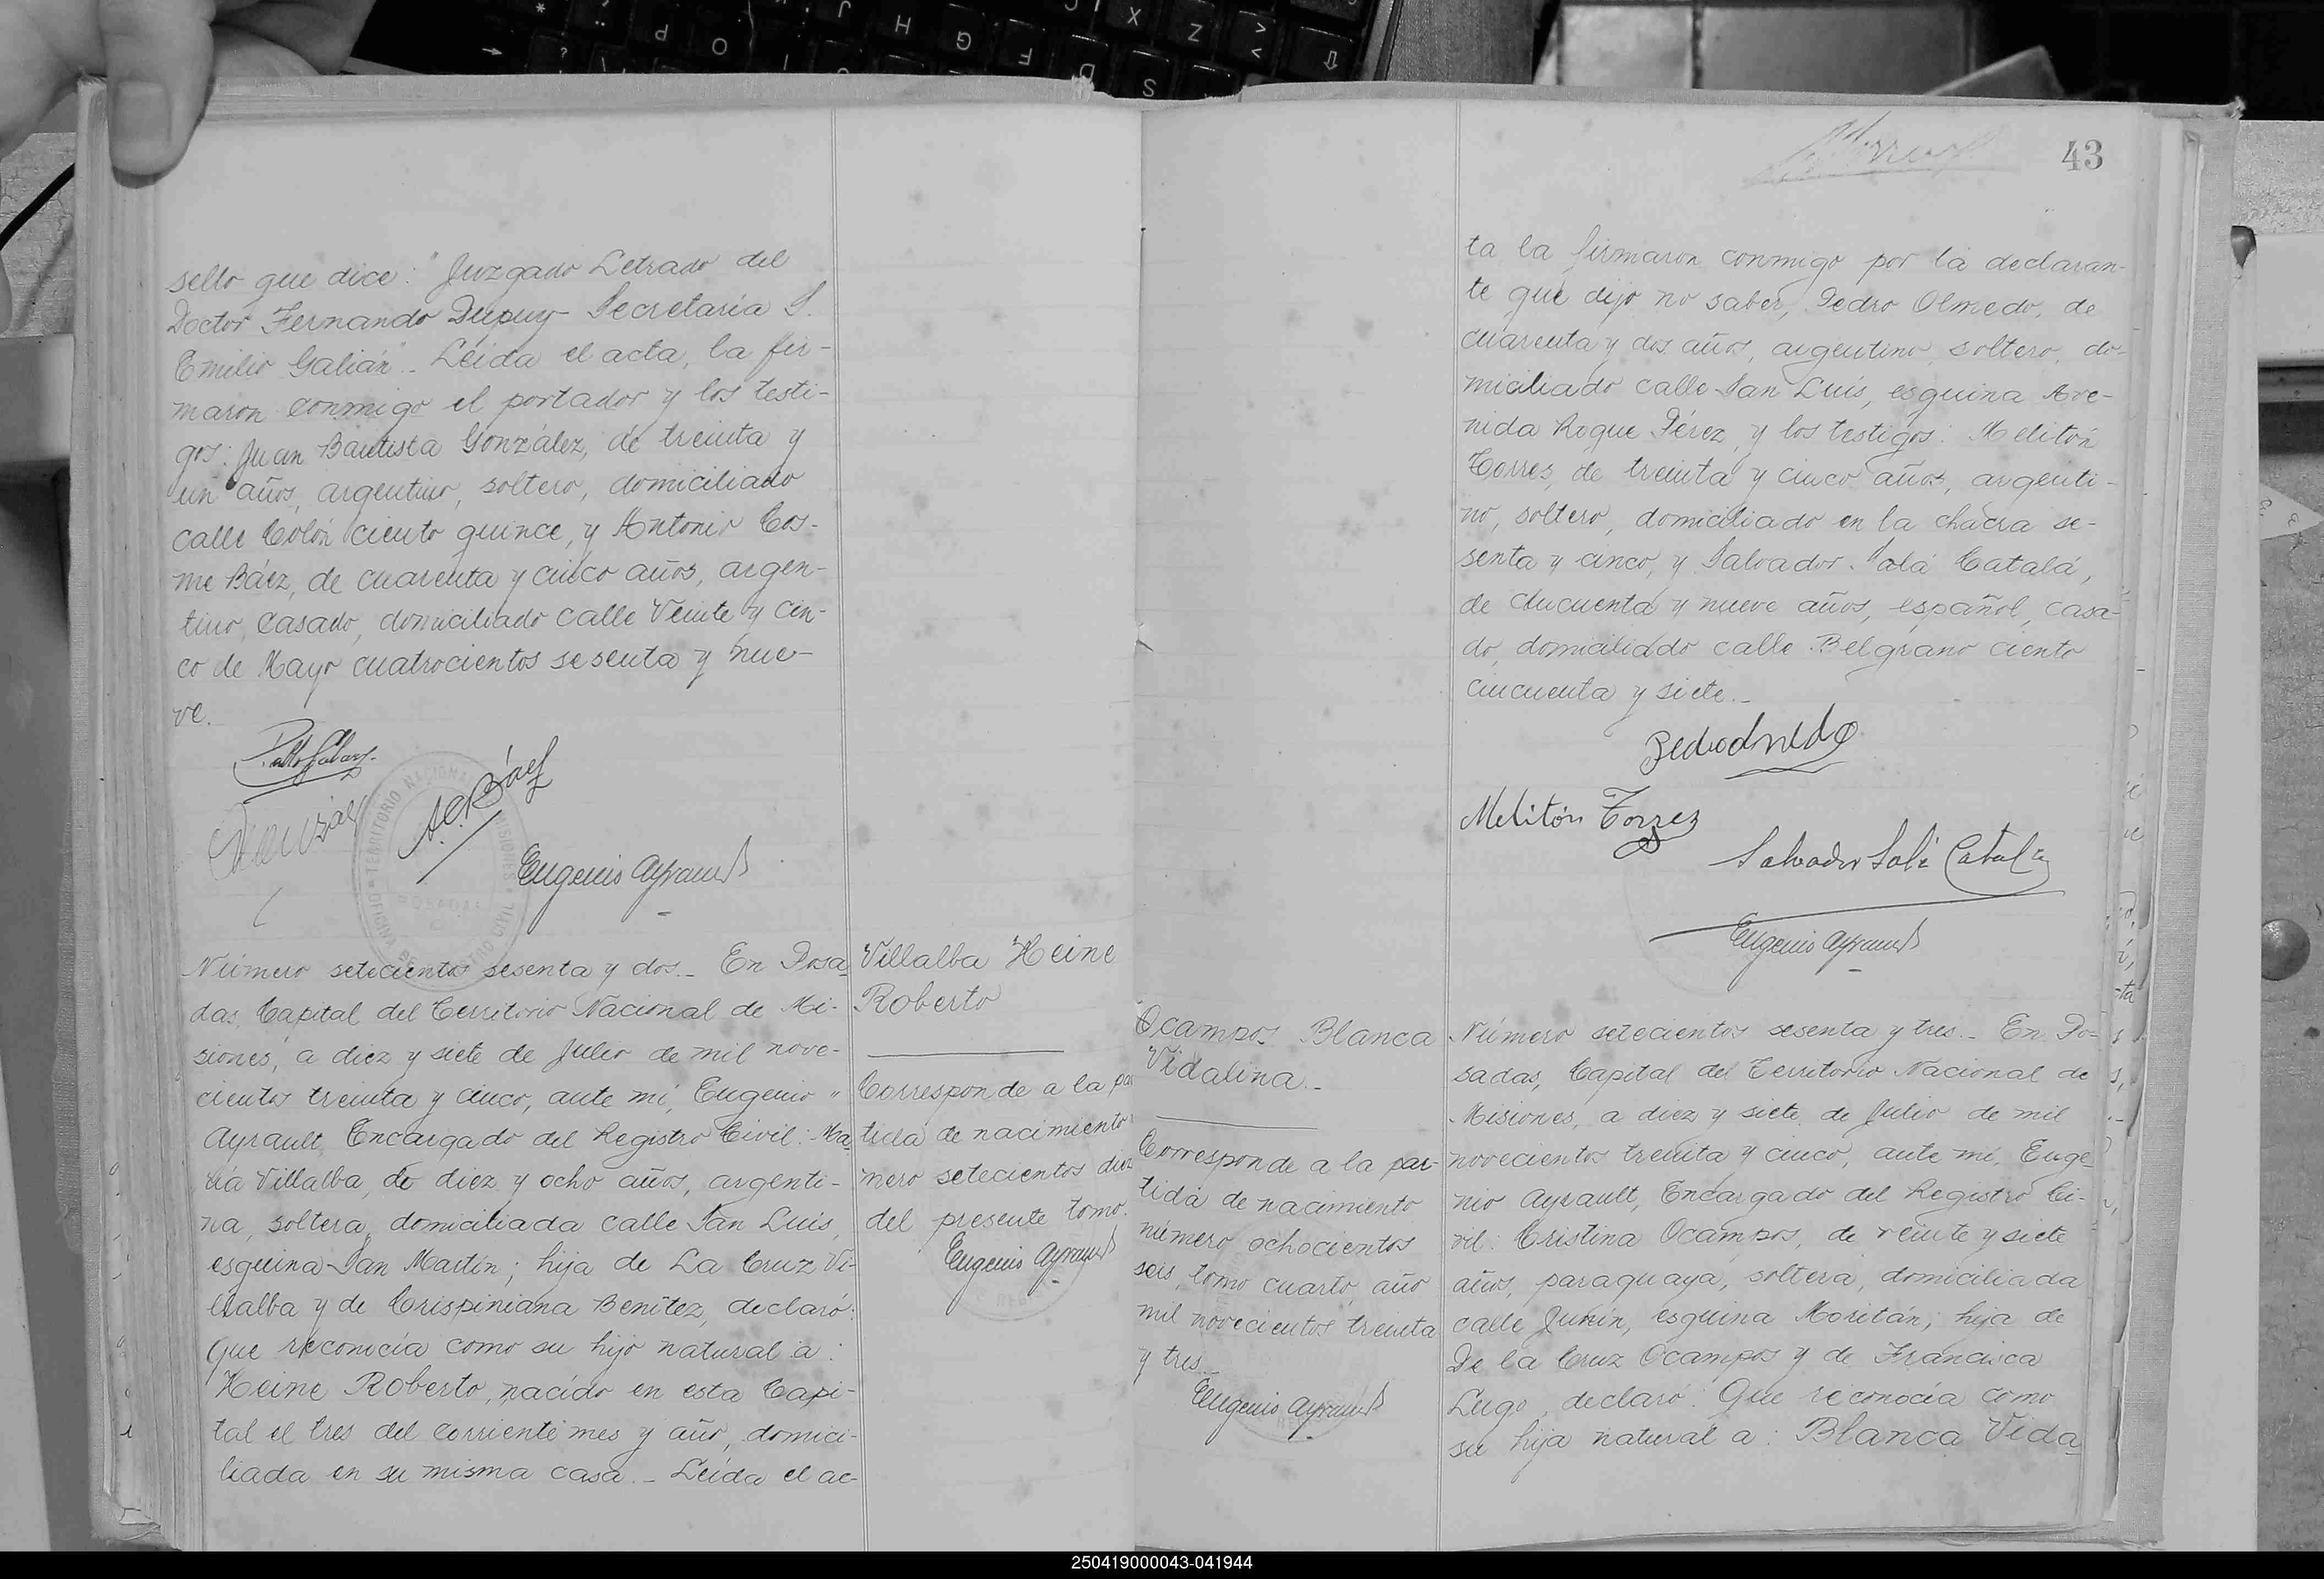 sello que dice: "Juzgado Letrado del
Doctor Fernando Dupuy - Secretaría S.
Emilio Galián".- Leída el acta, la fir-
maron conmigo el portador y los testi-
gos: Juan Bautista González, de treinta y
un años, argentino, soltero, domiciliado
calle Colón ciento quince, y Antonio Cos-
me Báez, de cuarenta y cinco años, argen-
tino, casado, domiciliado calle Veinte y cin-
co de Mayo cuatrocientos sesenta y nue-
ve.
A.C. Báez
Eugenio Ayrault
TERRITORIO NACIONAL MISIONES
POSADAS
OFICINA DE REGISTRO CIVIL
Número setecientos sesenta y dos.- En Posa-
das, Capital del Territorio Nacional de Mi-
siones, a diez y siete de Julio de mil nove-
cientos treinta y cinco, ante mí, Eugenio "
Ayrault, Encargado del Registro Civil: Ma-
ría Villalba, de diez y ocho años, argenti-
na, soltera, domiciliada calle San Luis,
esquina San Martín; hija de La Cruz Vi-
llalba y de Crispiniana Benítez, declaró:
Que reconocía como su hijo natural a:
Heine Roberto, nacido en esta Capi-
tal el tres del corriente mes y año, domici-
liada en su misma casa.- Leída el ac-
Villalba Heine
Roberto
Corresponde a la par
tida de nacimiento
mero setecientos diez
del presente tomo.
Eugenio Ayrault
43
ta la firmaron conmigo por la declaran-
te que dijo no saber, Pedro Olmedo, de
cuarenta y dos años, argentino, soltero, do-
miciliado calle San Luis, esquina Ave-
nida Roque Pérez, y los testigos: Melitón
Torres, de treinta y cinco años, argenti-
no, soltero, domiciliado en la chacra se-
senta y cinco, y Salvador Salá Catalá,
de cincuenta y nueve años, español, casa-
do, domiciliado calle Belgrano ciento
cincuenta y siete.-
Pedro Olmedo
Melitón Torres
Salvador Salá Catalá
Eugenio Ayrault
Ocampos Blanca
Vidalina.-
Corresponde a la par-
tida de nacimiento
número ochocientos
seis, tomo cuarto, año
mil novecientos treinta
y tres.-
Eugenio Ayrault
Número setecientos sesenta y tres.- En Po-
sadas, Capital del Territorio Nacional de
Misiones, a diez y siete de Julio de mil
novecientos treinta y cinco, ante mí, Euge-
nio Ayrault, Encargado del Registro Ci-
vil: Cristina Ocampos, de veinte y siete
años, paraguaya, soltera, domiciliada
calle Junín, esquina Moritán; hija de
De la Cruz Ocampos y de Francisca
Lugo, declaró: Que reconocía como
su hija natural a: Blanca Vida-
250419000043-041944